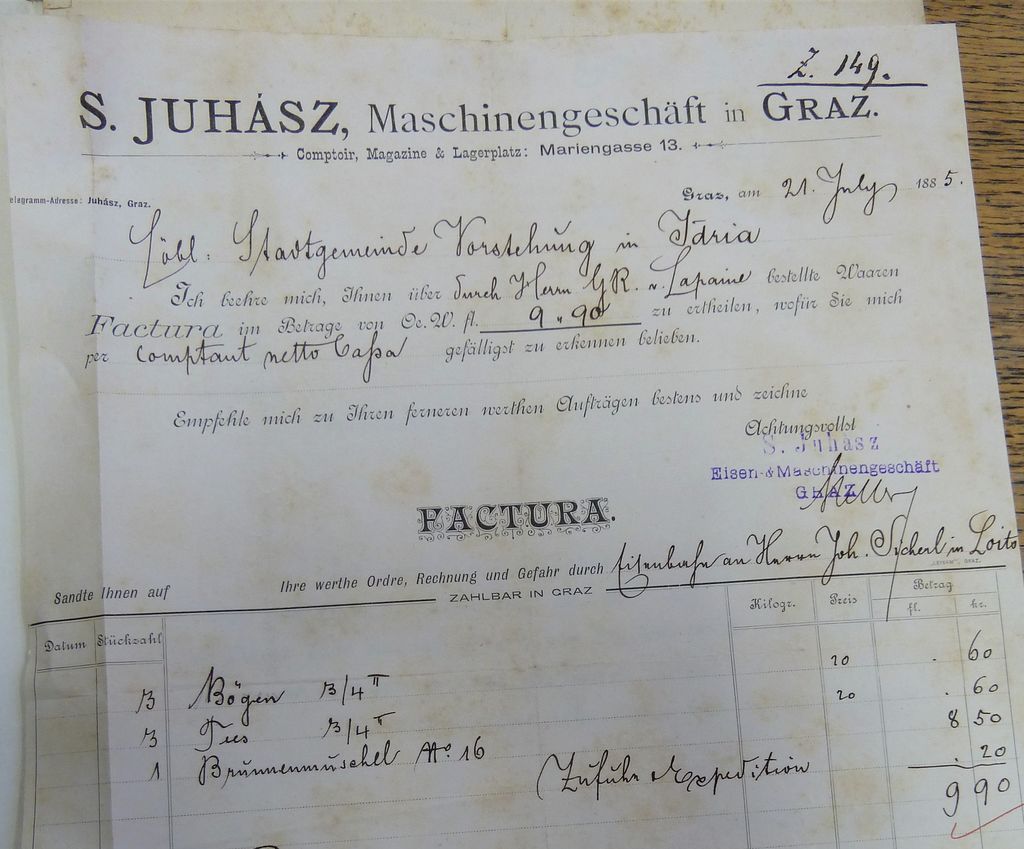 Z. 149.
S. JUHÁSZ, Maschinengeschäft in GRAZ.
Comptoir, Magazine & Lagerplatz: Mariengasse 13.
elegramm-Adresse: Juhász, Graz.
Graz, am 21. July 1885.
Löbl: Stadtgemeinde Vorstehung in Idria
Ich beehre mich, Ihnen über durch Herrn GR. v. Lapaine bestellte Waaren
Factura im Betrage von Oe. W. fl. 9 „ 90 zu ertheilen, wofür Sie mich
per comptant netto Cassa gefälligst zu erkennen belieben.
Empfehle mich zu Ihren ferneren werthen Aufträgen bestens und zeichne
Achtungsvollst
S. Juhász
Eisen-& Maschinengeschäft
GRAZ
FACTURA.
Sandte Ihnen auf Ihre werthe Ordre, Rechnung und Gefahr durch Eisenbahn an Herrn Joh. in Loits
ZAHLBAR IN GRAZ
Datum Stückzahl Kilogr. Preis Betrag
fl. kr.
3 Bögen 3/4" 20 . 60
3 Tees 3/4" 20 . 60
1 Brunnenmuschel No. 16 8 50
Zufuhr & Expedition . 20
9 90